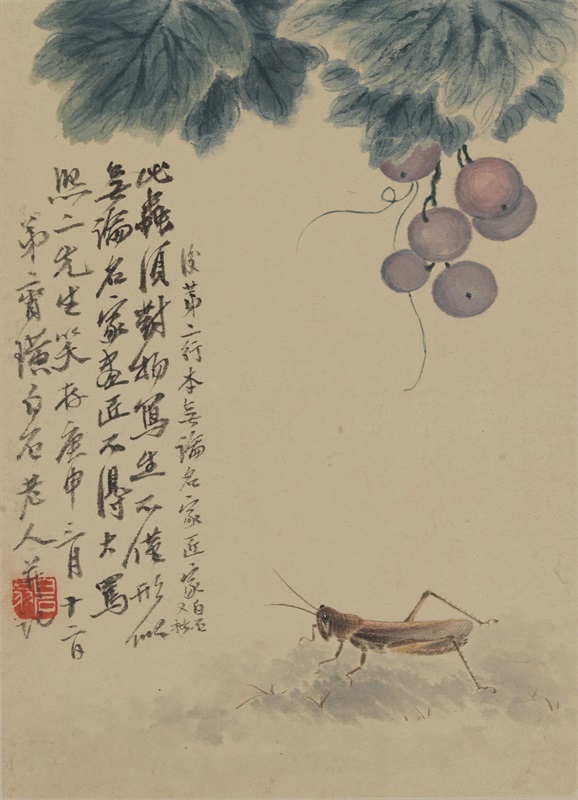 此虫須對物寫生不僅形似
無論名家畫匠不得大罵
熙二先生笑存庚申三月十二日
弟齊璜白石老人并記
後第二行本無論名家匠家白石又
白石翁